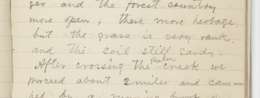 and the forest country
more open, there more herbage,
but the grass is very rank,
and the soil still sandy.
After crossing the creek we
proceed about 2 miles and cam-